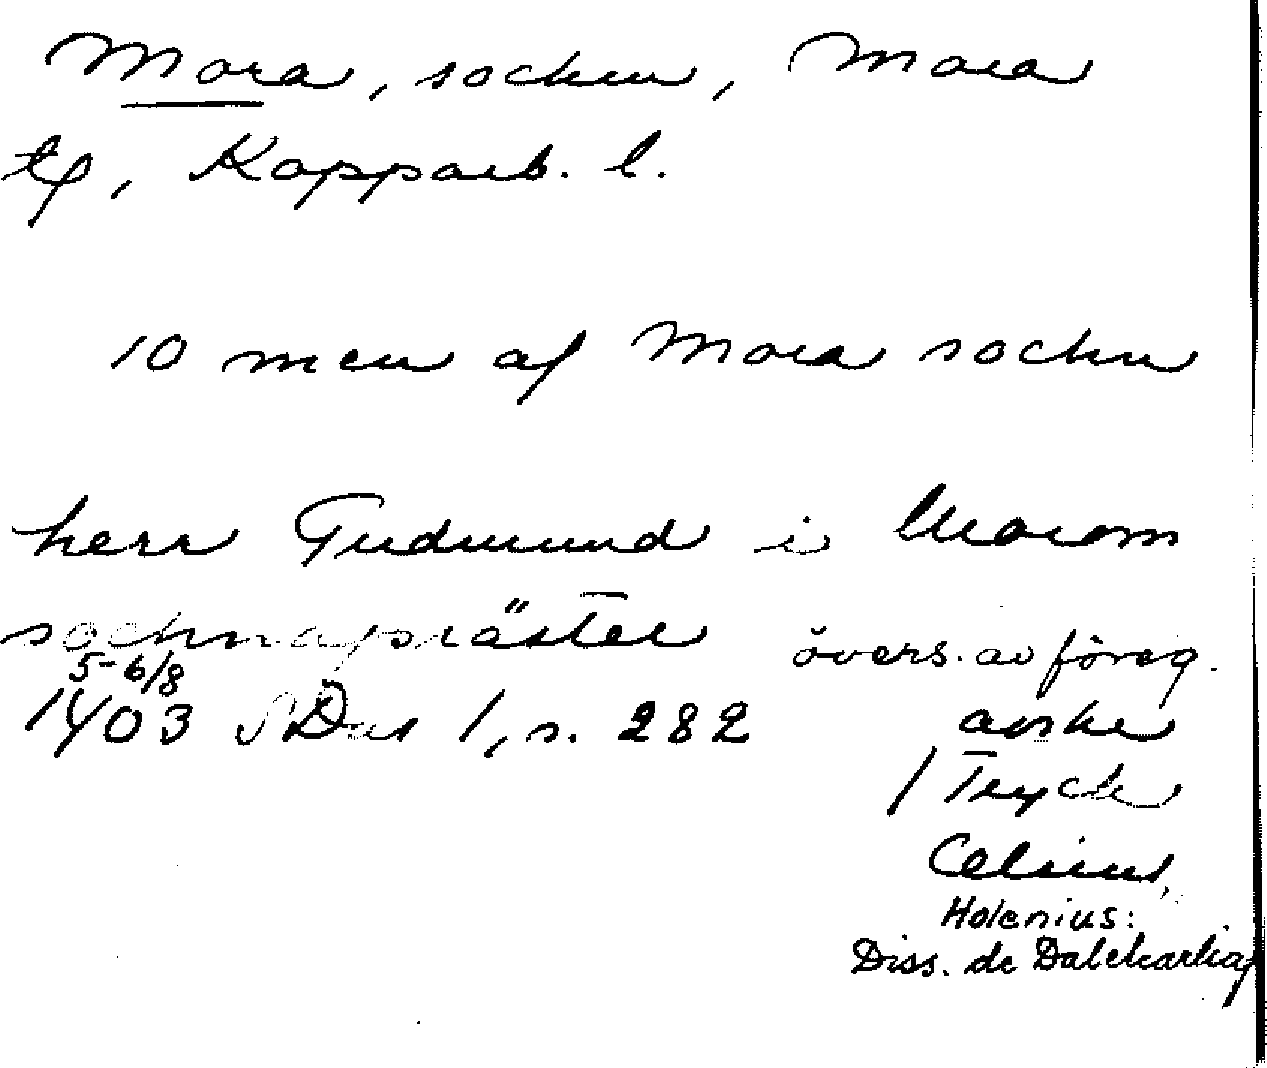 Mora, socken, Mora
tg, Kopparb. l.
10 men af Mora sockn
herr Gudmund i Morom
sochnapräster övers. av föreg.
5-6/8
1403 SDns 1, s. 282 avskr
/ Tryck
Celsius,
Holenius:
Diss. de Dalekarlia/